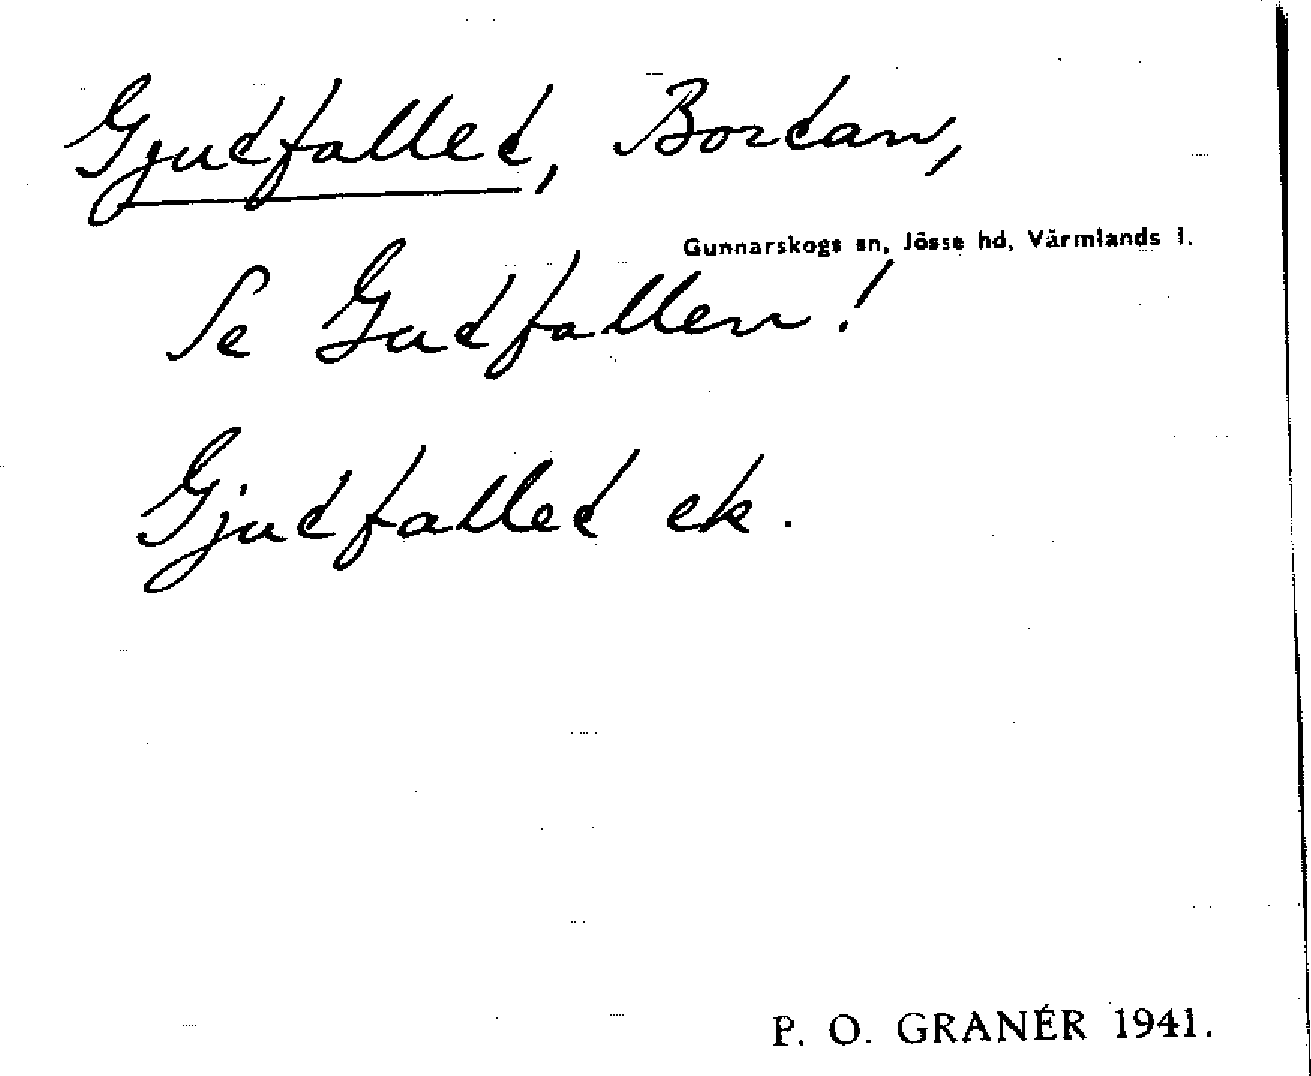 Gjutfallet, Bortan,
Gunnarskogs sn, Jösse hd, Värmlands l.
Se Gutfallen!
Gjutfallet ek.
P. O. GRANÉR 1941.